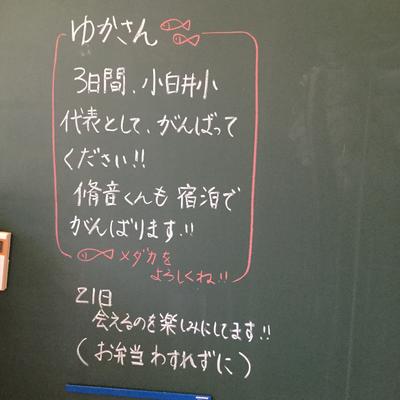 ゆかさん
3日間、小白井小
代表として、がんばって
ください!!
脩音くんも 宿泊で
がんばります!!
メダカを
よろしくね!!
21日
会えるのを楽しみにしてます!!
(お弁当 わすれずに)